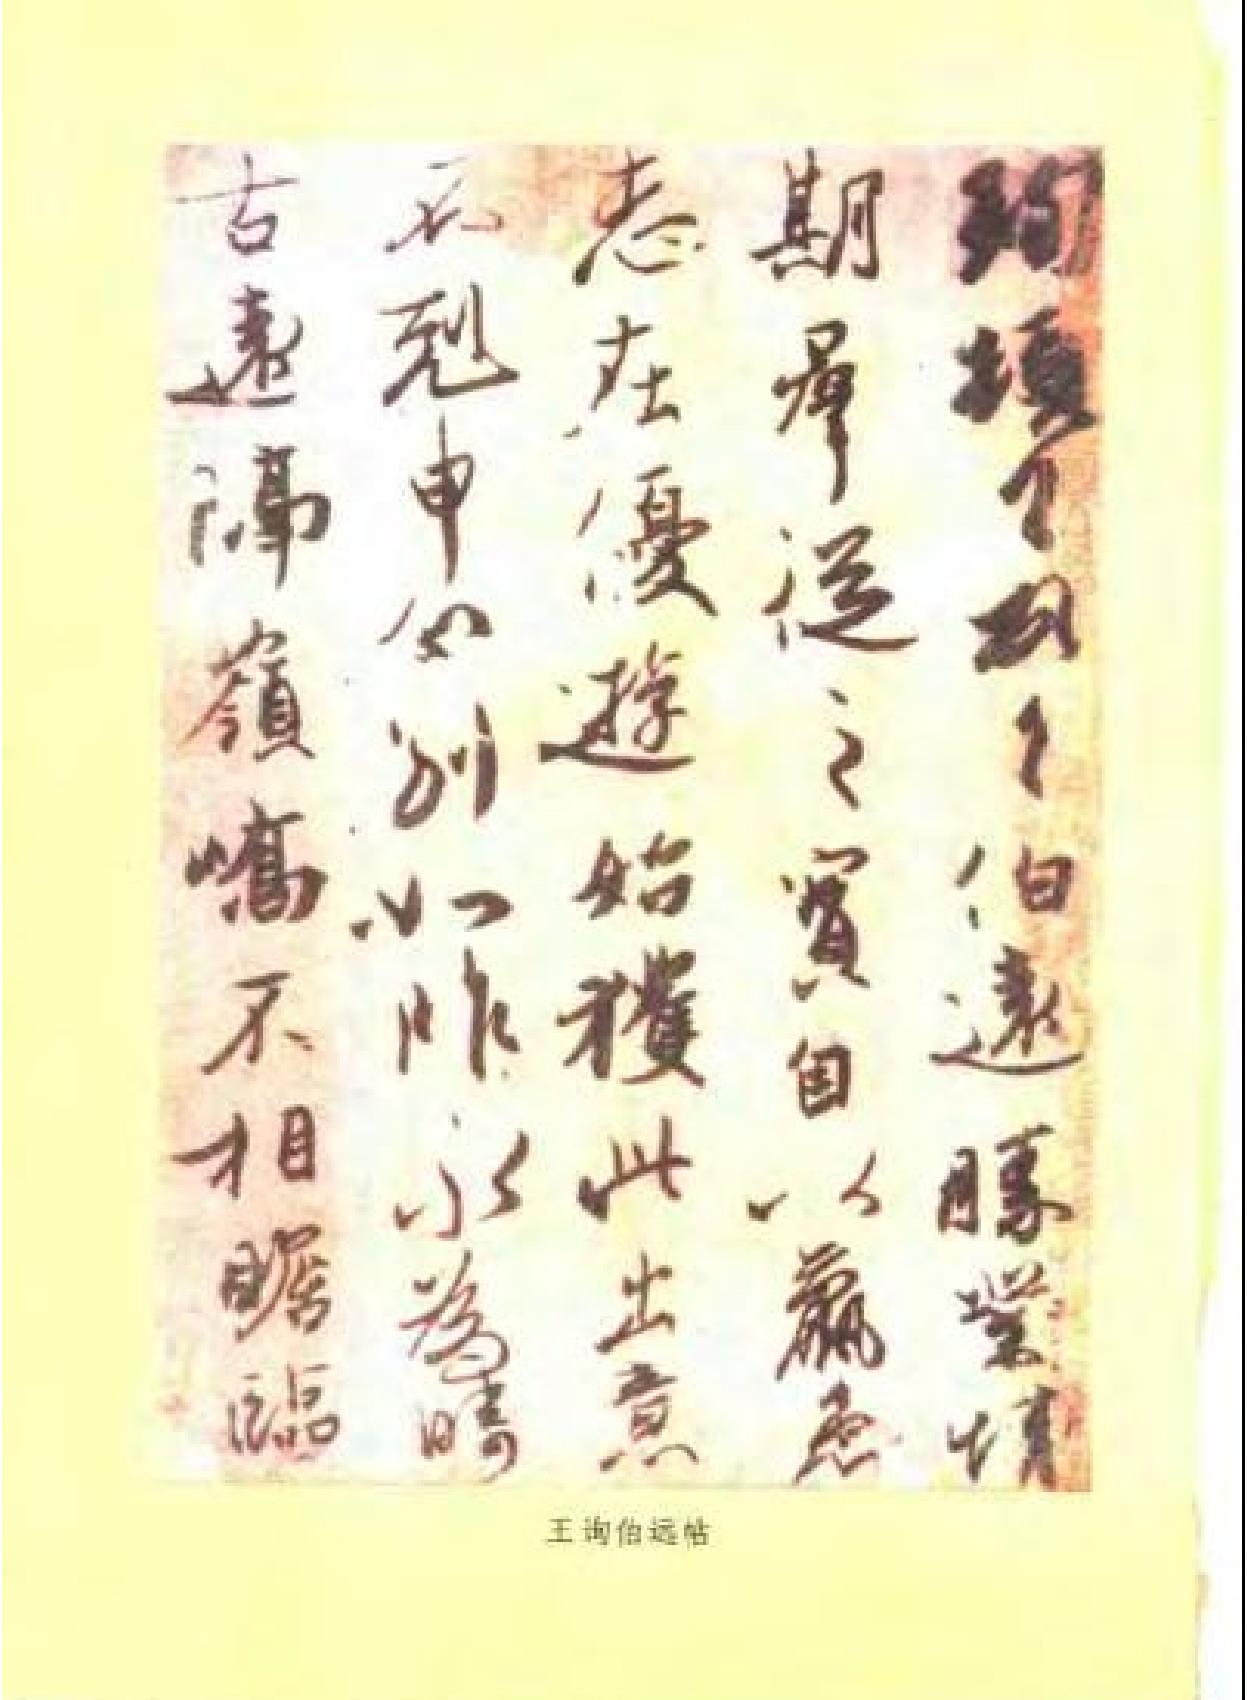 珣頓首頓首伯遠勝業情
期羣從之寶自以羸患
志在優遊始獲此出意
不剋申分別如昨永為疇
古遠隔嶺嶠不相瞻臨
王询伯远帖